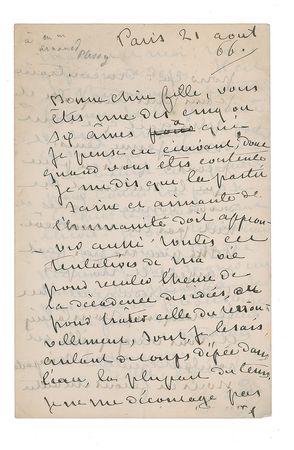 à mme
arnould
Plessy
Paris 21 août
66.
Bonne chère fille, vous
êtes une des cinq ou
six âmes à qui
je pense en écrivant, donc
quand vous êtes contente
je me dis que la partie
saine et aimante de
l'humanité doit approu-
ver aussi. Toutes ces
tentatives de ma vie
pour retarder l'heure de
la décadence des idées, ou
pour hâter celle du renou-
vellement, sont, je le sais
autant de coups d'épée dans
l'eau, la plupart du temps,
je ne me décourage pas